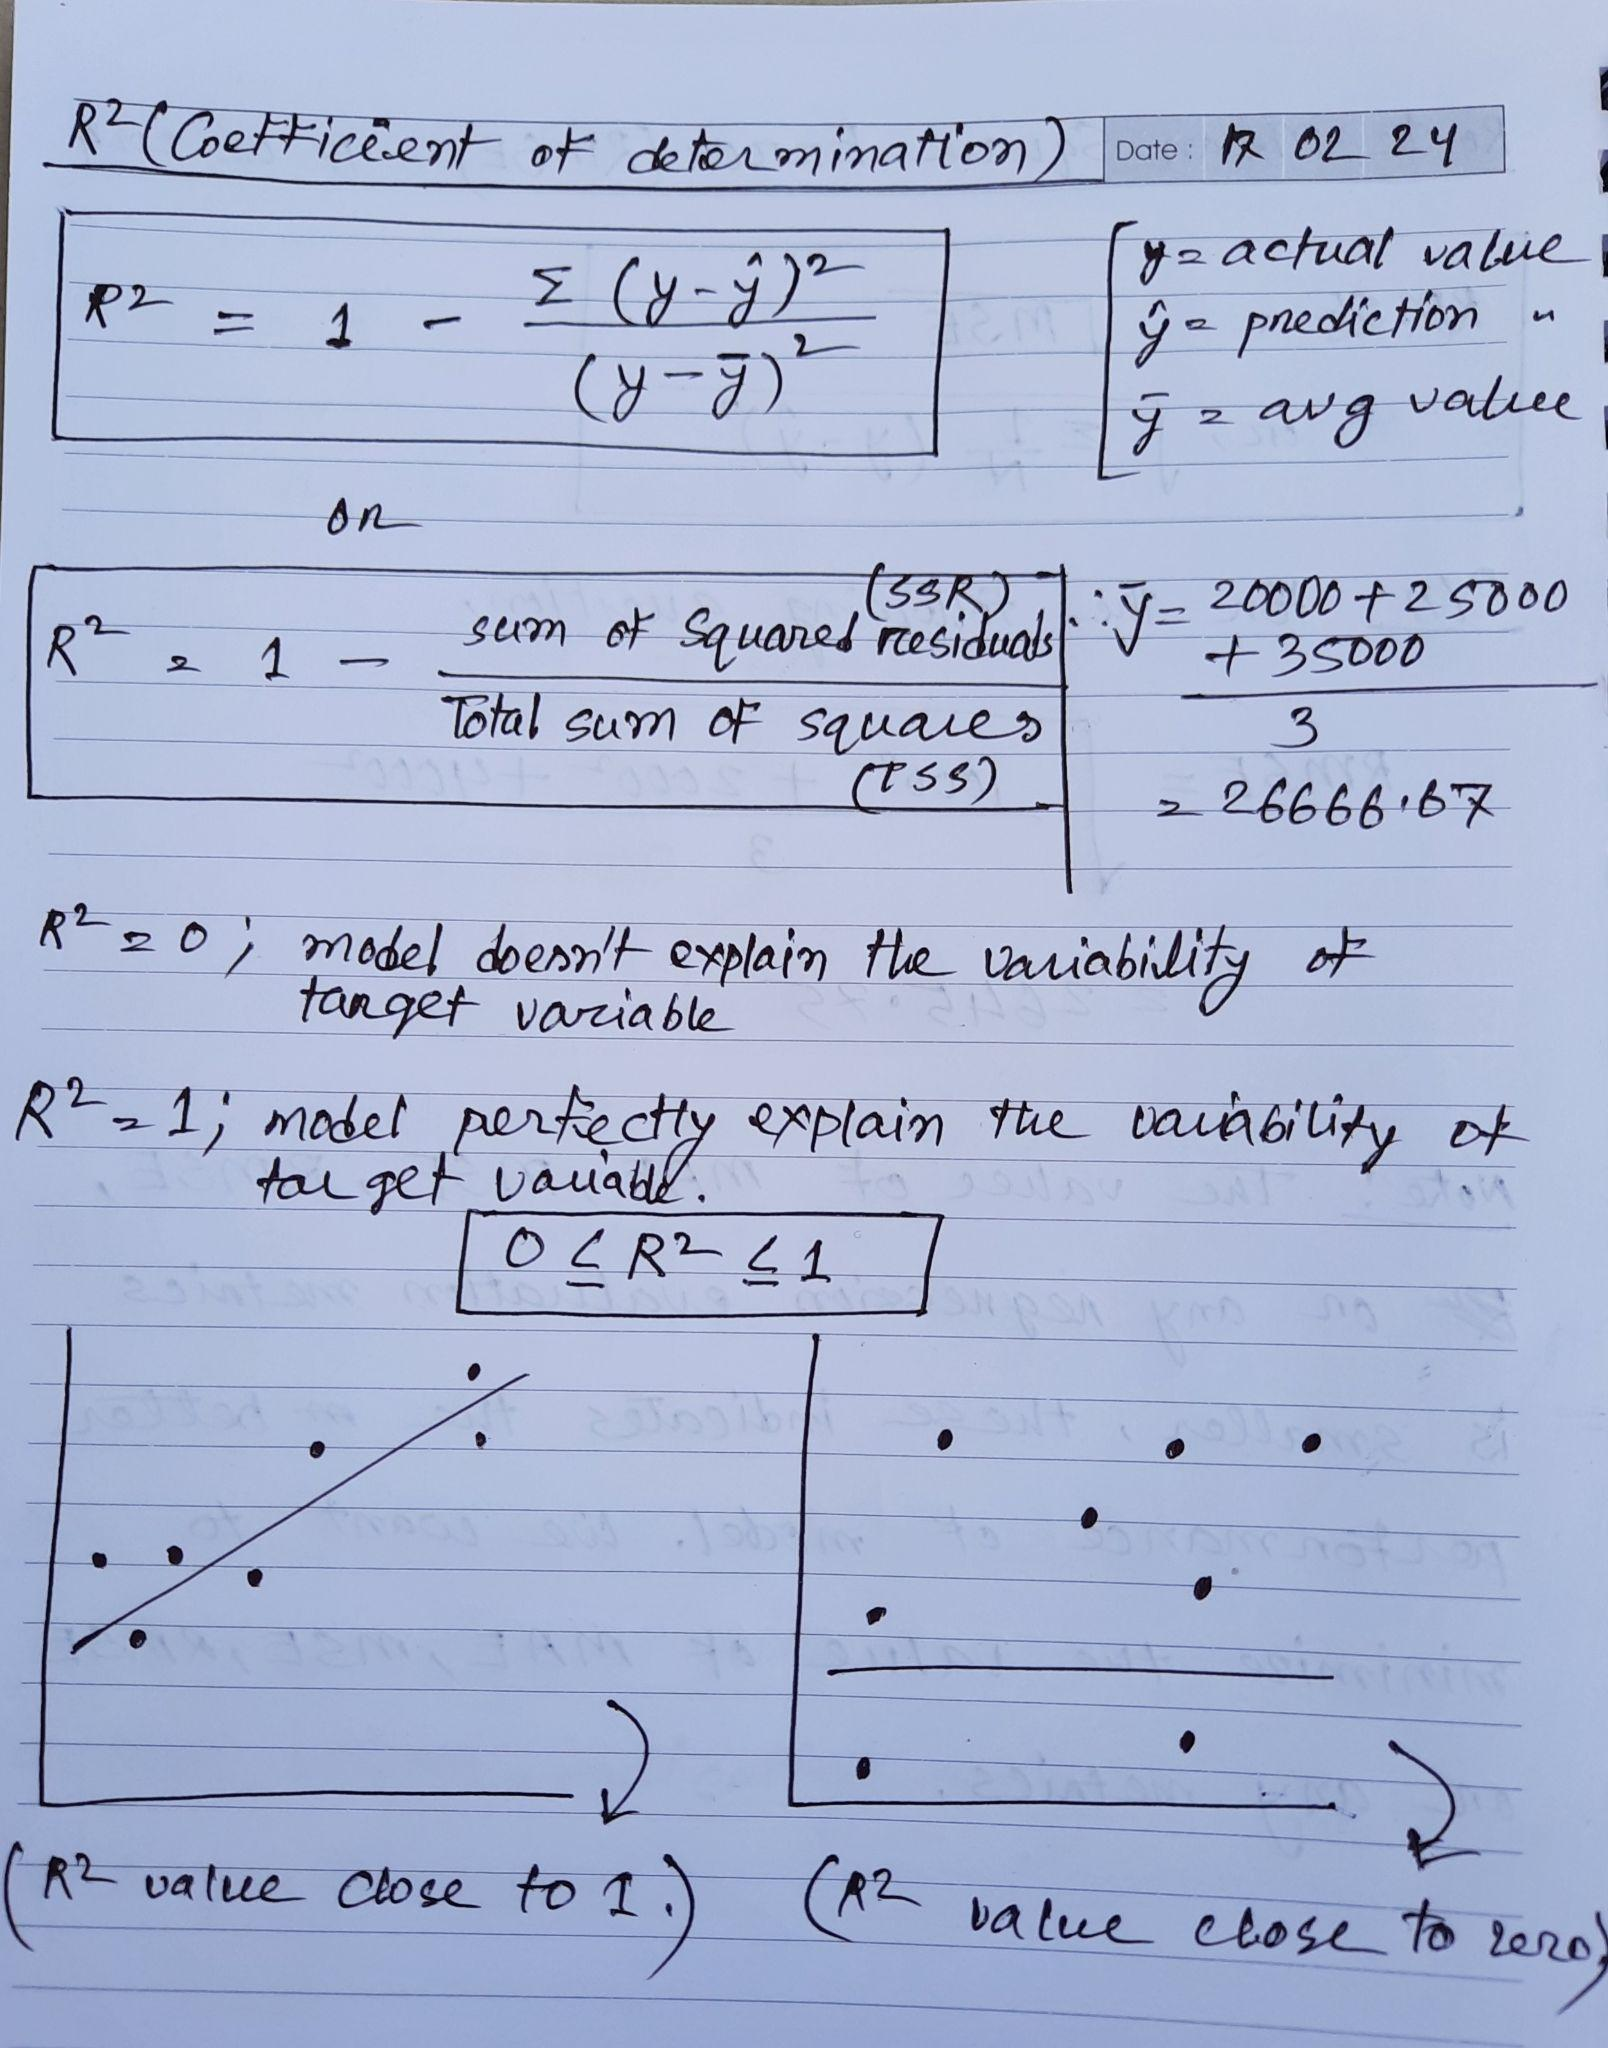 R² (Coefficient of determination)
Date: 17 02 24
R² = 1 - Σ (y-ŷ)² / (y-ȳ)²
y = actual value
ŷ = prediction "
ȳ = avg value
or
R² = 1 - sum of squared residuals (SSR) / Total sum of squares (TSS)
∴ ȳ = 20000 + 25000 + 35000 / 3
= 26666.67
R² = 0 ; model doesn't explain the variability of
target variable
R² = 1 ; model perfectly explain the variability of
target variable.
0 ≤ R² ≤ 1
(R² value close to 1.)
(R² value close to zero)